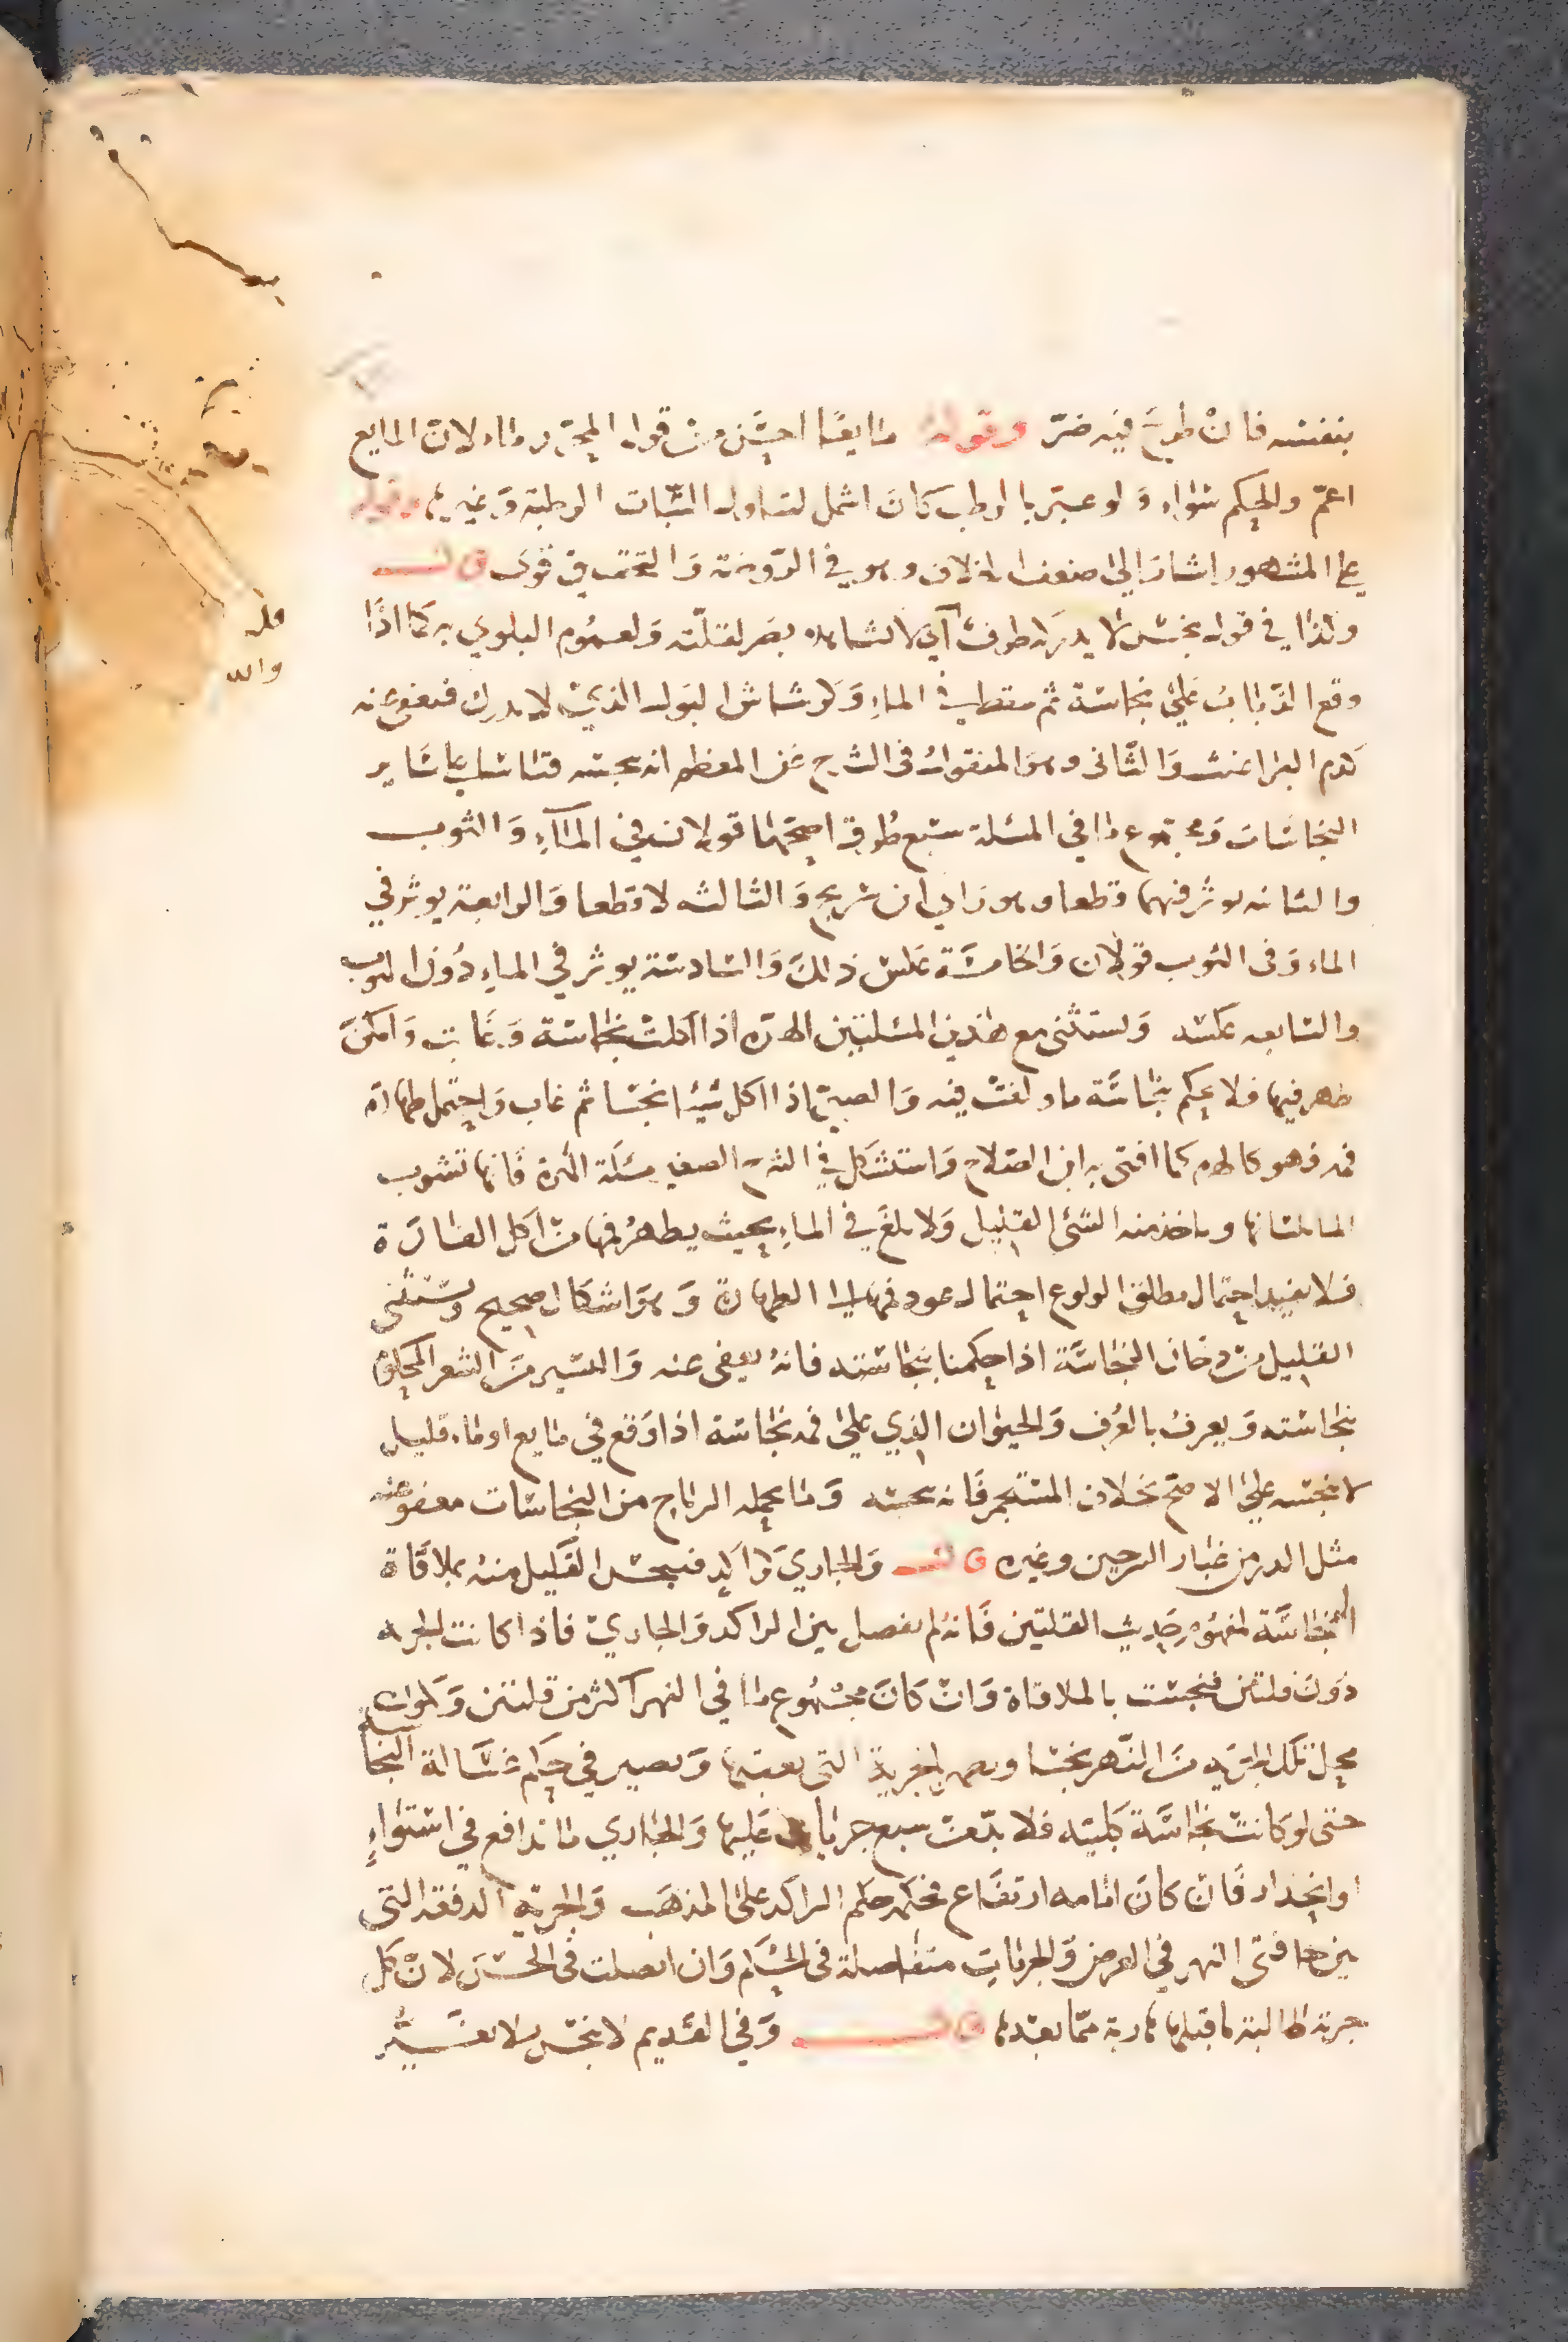 بنفسه فان طرح فيه ضرّ وقوله مايعًا احسن من قول المحرر ماء لان المايع
اعمّ والحكم سواء ولو عبّر بالرطب كان اشمل لتناوله الثياب الرطبة وغيرها وقوله
على المشهور اشارة الى ضعف الخلاف وهو في الروضة والتحقيق قوى قال
وكذا في قول نجس لا يدركه طرف اي لا يشاهده بصر لقلته ولعموم البلوي به كما اذا
وقع الذباب على نجاسة ثم سقط في الماء وكرشاش البول الذي لا يدرك فيعفي عنه
كدم البراغيث والثاني وهو المنقول في الشرح عن المعظم انه ينجسه قياسا على ساير
النجاسات ومجموع ما في المسئلة سبع طرق اصحها قولان في الماء والثوب
والثانيه يوثر فيهما قطعا وهو راي ابن سريج والثالثه لا قطعا والرابعة يوثر في
الماء وفى الثوب قولان والخامسة عكس ذلك والسادسة يوثر في الماء دون الثوب
والسابعه عكسه ويستثنى مع هذين المسئلتين الهرة اذا اكلت نجاسة وغابت وامكن
طهر فيها فلا يحكم بنجاسة ما ولغت فيه والصبيّ اذا اكل شيئا نجسا ثم غاب واحتمل طهارة
فمه فهو كالهرة كما افتى به ابن الصلاح واستشكل في الشرح الصغير مسئلة الهرة فانها تشرب
الما بلسانها وياخذ منه الشئ القليل ولا يلغ في الماء بحيث يطهر فمها من اكل الفارة
فلا يفيد احتمال مطلق الولوغ احتمال عود فمها الى الطهارة وهو اشكال صحيح ويستثنى
القليل من دخان النجاسة اذا حكمنا بنجاسته فانه يعفى عنه واليسير من الشعر المحكوم
بنجاسته ويعرف بالعرف والحيوان الذي على فمه نجاسة اذا وقع في مايع او ماء قليل
لا ينجسه على الاصح بخلاف المستجمر فانه ينجسه وما يحمله الرياح من النجاسات معفو عنه
مثل الدر من غبار السرجين وغيره قال والجاري كراكد فينجس القليل منه بملاقاة
النجاسة لمفهوم حديث القلتين فانه لم يفصل بين الراكد والجاري فاذا كانت الجرية
دون قلتين فنجست بالملاقاة وان كان مجموع ما في النهر اكثر من قلتين ويكون
محل تلك الجرية من النهر نجسا ويطهر بالجرية التي تعقبها ويصير في حكم غسالة النجاسة
حتى لو كانت نجاسة كلبية فلا بد من سبع جريات عليها والجاري ما تدافع في استواء
او انحدار فان كان امامه ارتفاع فحكمه حكم الراكد على المذهب والجرية الدفقة التى
بين حافتى النهر في العرض والجريات متفاصلة فى الحكم وان اتصلت فى الحسّ لان كل
جرية طالبة ما قبلها هاربة مما بعدها قال وفي القديم لا ينجس بلا تغيّر